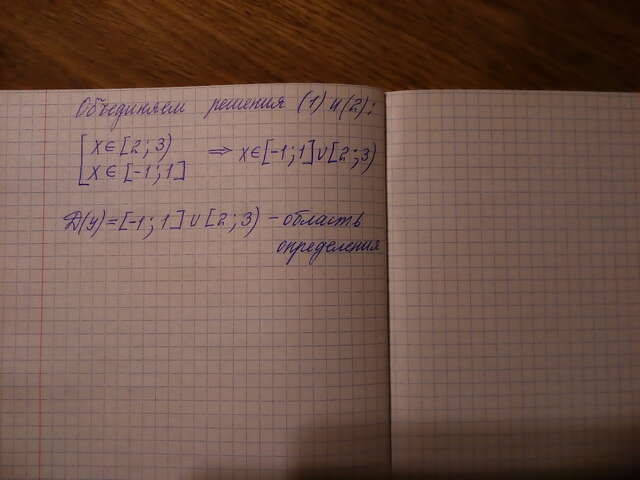 Объединяем решения (1) и (2):
[ x ∈ [2; 3)
[ x ∈ [-1; 1]
⇒ x ∈ [-1; 1] ∪ [2; 3)
D(y) = [-1; 1] ∪ [2; 3) - область
определения